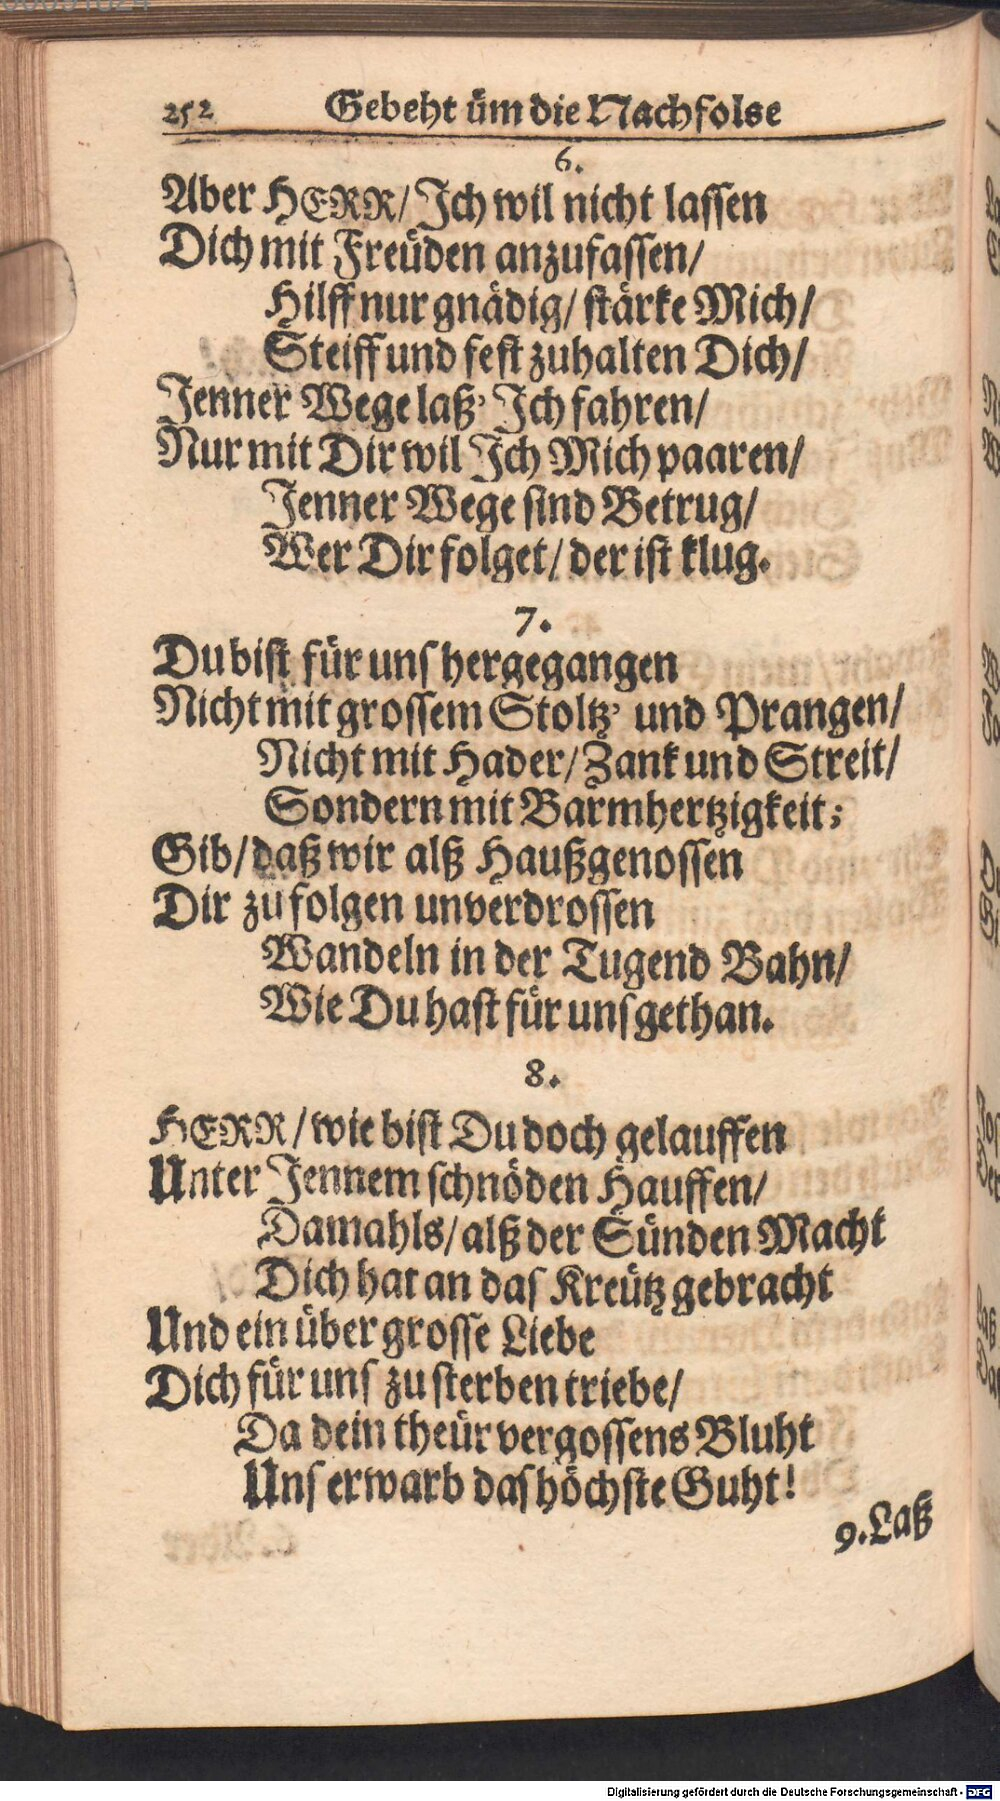 252 Gebeht üm die Nachfolge
6.
Aber HERR/ Ich wil nicht lassen
Dich mit Freüden anzufassen/
Hilff nur gnädig/ stärke Mich/
Steiff und fest zuhalten Dich/
Jenner Wege laß' Ich fahren/
Nur mit Dir wil Ich Mich paaren/
Jenner Wege sind Betrug/
Wer Dir folget/ der ist klug.
7.
Du bist für uns hergegangen
Nicht mit grossem Stoltz' und Prangen/
Nicht mit Hader/ Zank und Streit/
Sondern mit Barmhertzigkeit;
Gib/ daß wir alß Haußgenossen
Dir zu folgen unverdrossen
Wandeln in der Tugend Bahn/
Wie Du hast für uns gethan.
8.
HERR/ wie bist Du doch gelauffen
Unter Jennem schnöden Hauffen/
Damahls/ alß der Sünden Macht
Dich hat an das Kreütz gebracht
Und ein über grosse Liebe
Dich für uns zu sterben triebe/
Da dein theür vergossens Bluht
Uns erwarb das höchste Guht!
9. Laß
Digitalisierung gefördert durch die Deutsche Forschungsgemeinschaft - DFG